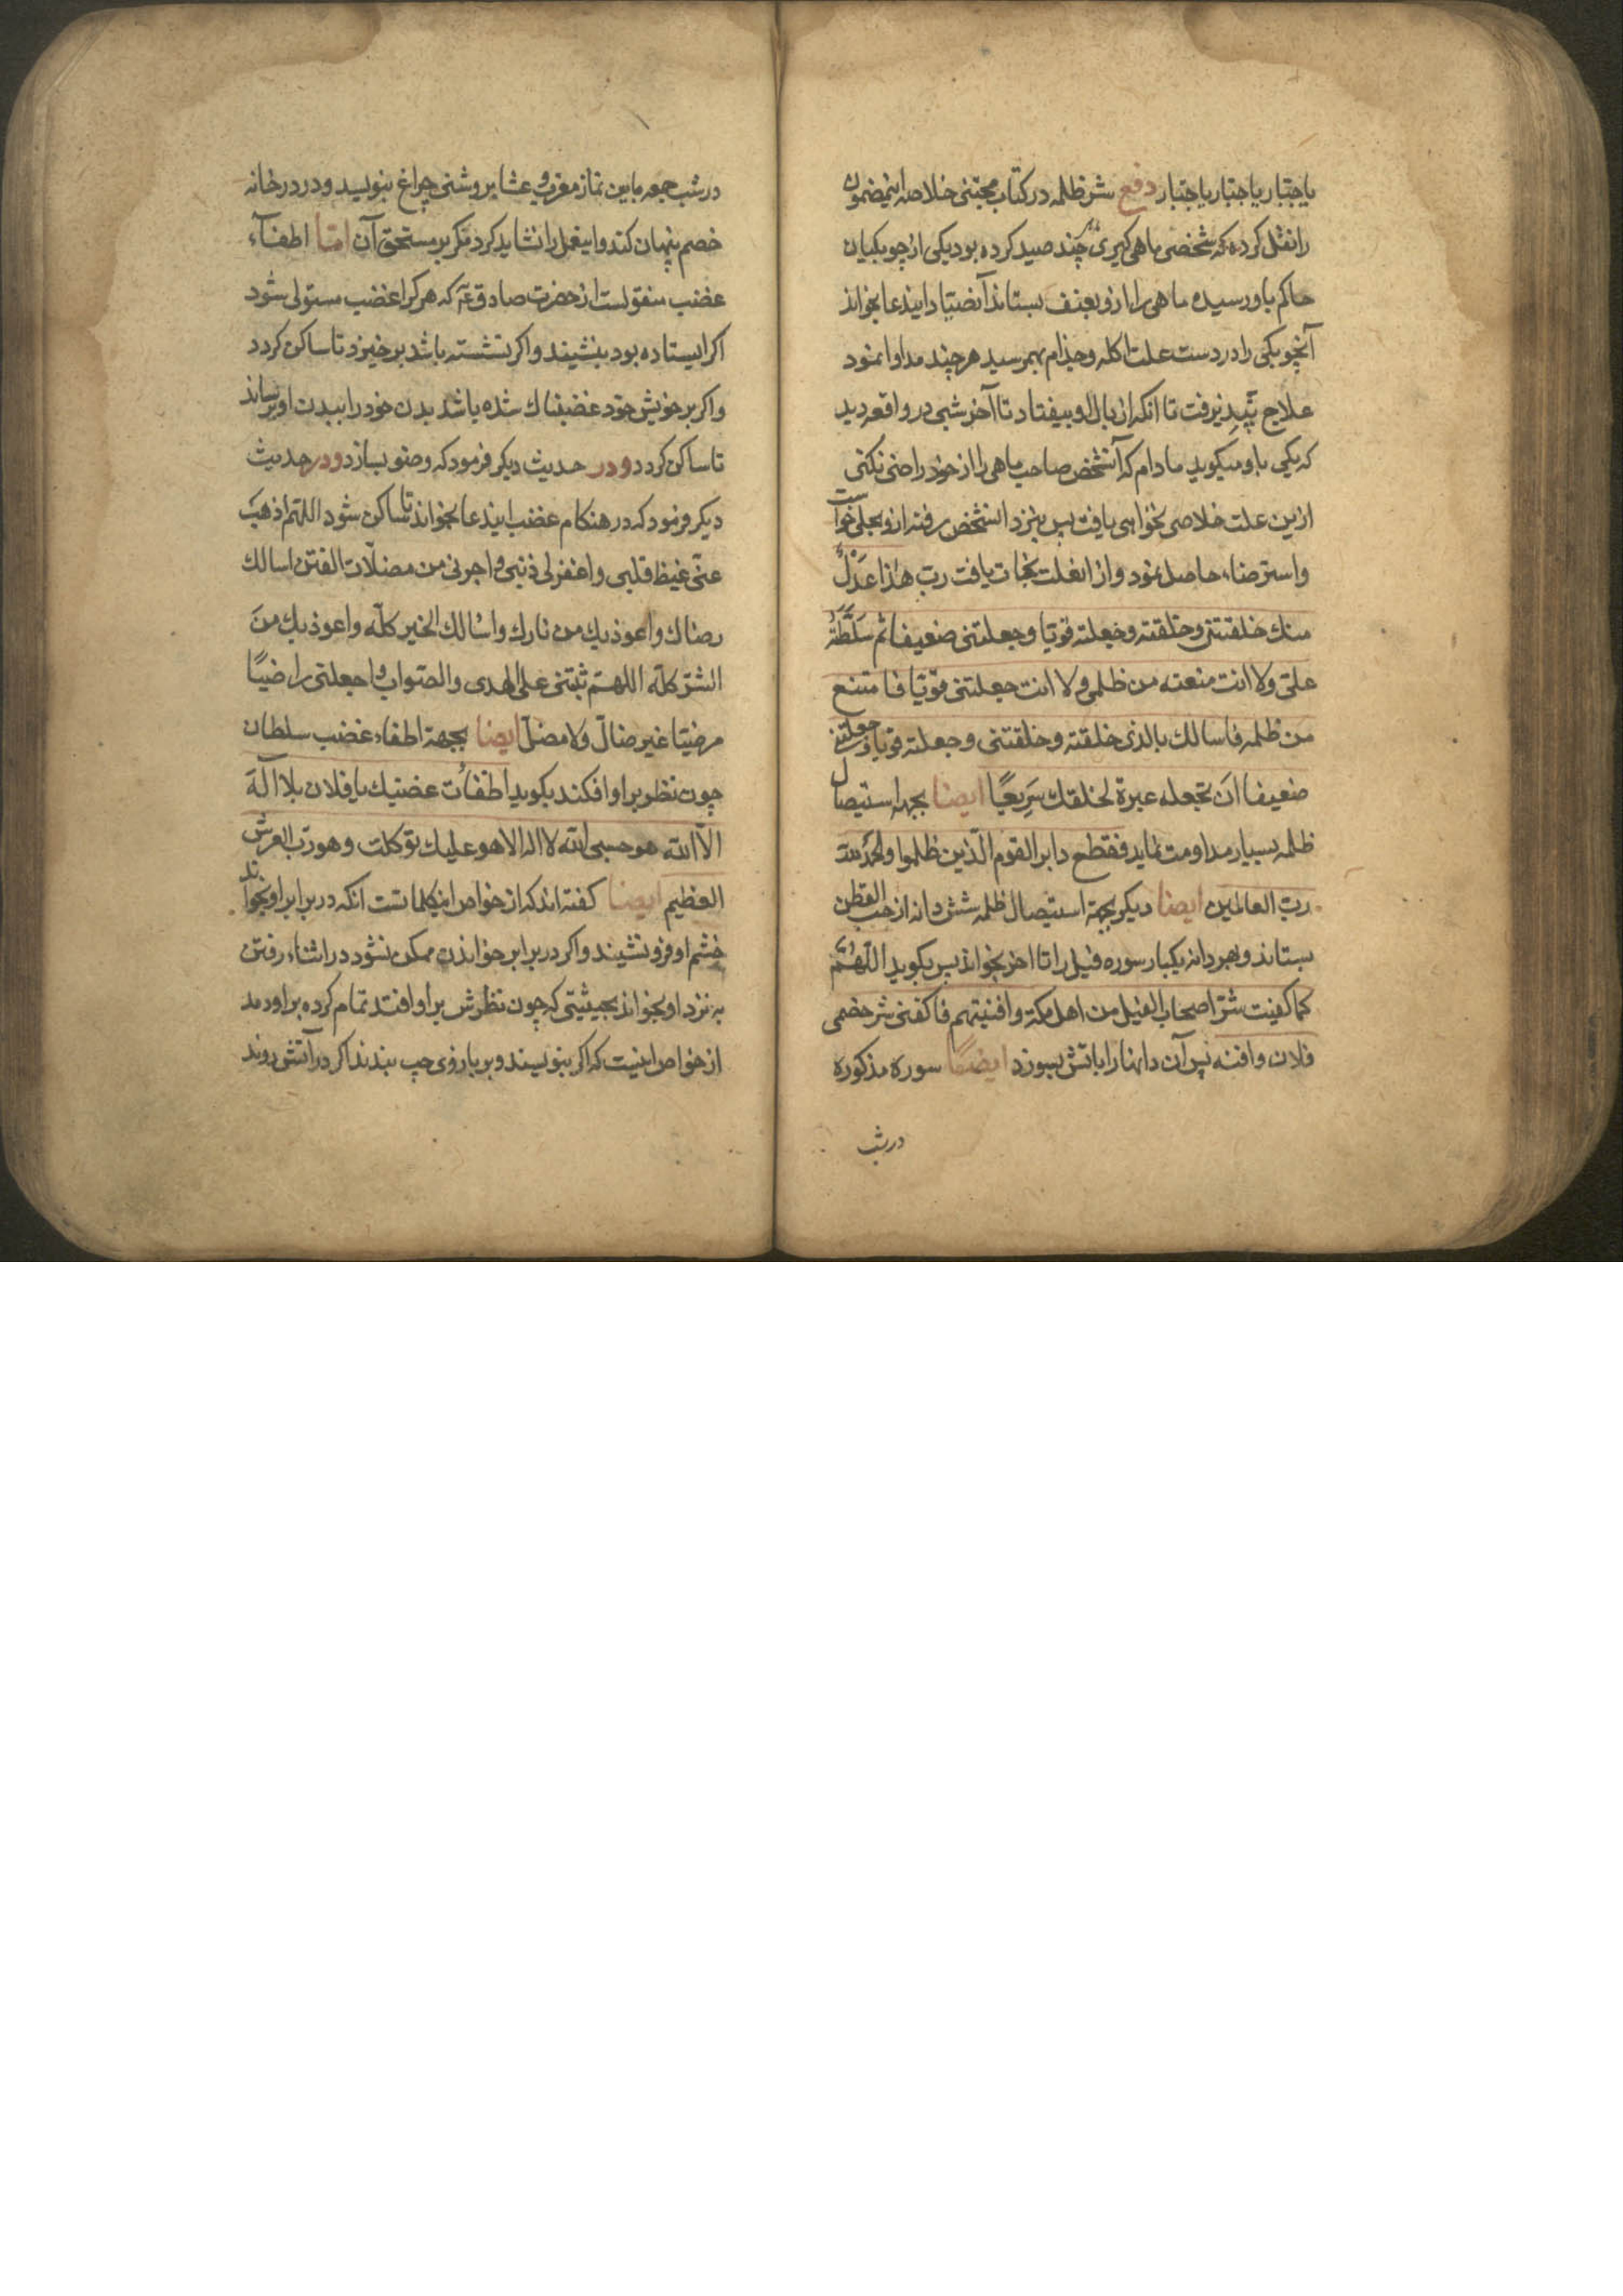 یا جبّار یا جبّار یا جبّار دفع شر ظلمه در کتاب مجتنی خلاصه اینمضمون
را نقل کرده که شخصی ماهی کیری چند صید کرده بود یکی از چوبکیان
حاکم باو رسیده ماهی را از و بعنف بستاند آنصیّاد ایندعا بخواند
آنچوبکی را در دست علت اکله و جذام بهمرسید هر چند مداوا نمود
علاج نپذیرفت تا انکه از بال او بیفتاد تا آخر شبی در واقعه دید
که یکی باو میکوید مادام که آنشخص صاحب ماهی را از خود راضی نکنی
ازین علت خلاصی نخواهی یافت پس بنزد انشخص رفته ازو بحلی خواست
و استرضاء حاصل نمود و از انعلت نجات یافت رب هٰذا عَدْلٌ
منك خلقتنی و خلقته و جعلته قویّا و جعلتنی ضعیفا ثم سَلَّطَتَهُ
علیّ ولا انت منعته من ظلمی و لا انت جعلتنی قویّا فامتنع
من ظلمه فاسالك بالذی خلقته و خلقتنی و جعلته قویا و جعلتنی
ضعیفا اَن تجعله عبرة لخلقك سَرِیعًا ایضا بجهة استیصال
ظلمه بسیار مداومت نماید فقطع دابر القوم الّذین ظلموا والحمد لله
ربّ العالمین ایضا دیکر بجهة استیصال ظلمه شش دانه از حب القطن
بستاند و بهر دانه یکبار سوره فیل را تا اخر بخواند پس بکوید اللّهُمَّ
کما کفیت شرّ اصحاب الفیل من اهل مکّة و افنیتهم فاکفنی شر خصمی
فلان وافنه پس آن دانها را باتش بسوزد ایضًا سوره مذکوره
در شب
در شب جمعه مابین نماز مغرب و عشا بر وشنی چراغ بنویسد و در در خانه
خصم پنهان کند و اینعمل را نشاید کرد مکر بر مستحق آن امّا اطفآء
غضب منقولست از حضرت صادق ع که هر کرا غضب مستولی شود
اکر ایستاده بود بنشیند و اکر نشسته باشد برخیزد تا ساکن کردد
و اکر بر خویش خود غضبناك شده باشد بدن خود را ببدن او برساند
تا ساکن کردد و در حدیث دیکر فرمود که وضو بسازد و در حدیث
دیکر فرمود که در هنکام غضب ایندعا بخواند تا ساکن شود اللهّم اذهب
عنّی غیظ قلبی و اغفر لی ذنبی و اجرنی من مضلّات الفتن اسالك
رضاك و اعوذ بك من نارك و اسالك الخیر کلّه و اعوذ بك من
الشرّ کلّه اللهمّ ثبّتنی علی الهدی و الصّواب و اجعلنی راضیًا
مرضیّا غیر ضالّ ولا مضلّ ایضا بجهة اطفاء غضب سلطان
چون نظر بر او افکند بکوید اطفاُت غضبك یا فلان بلا اله
الّا الله هو حسبی الله لا اله الا هو علیك توکلت و هو ربّ العرش
العظیم ایضا کفته اند که از خواص اینکلماتست انکه در برابر او بخواند
خشم او فرو نشیند و اکر در برابر خواندن ممکن نشود در اثناء رفتن
به نزد او بخواند بحیثیتی که چون نظرش بر او افتد تمام کرده بر او دمد
از خواص اینست که اکر بنویسند و بر بازوی چپ بندند اکر در آتش روند